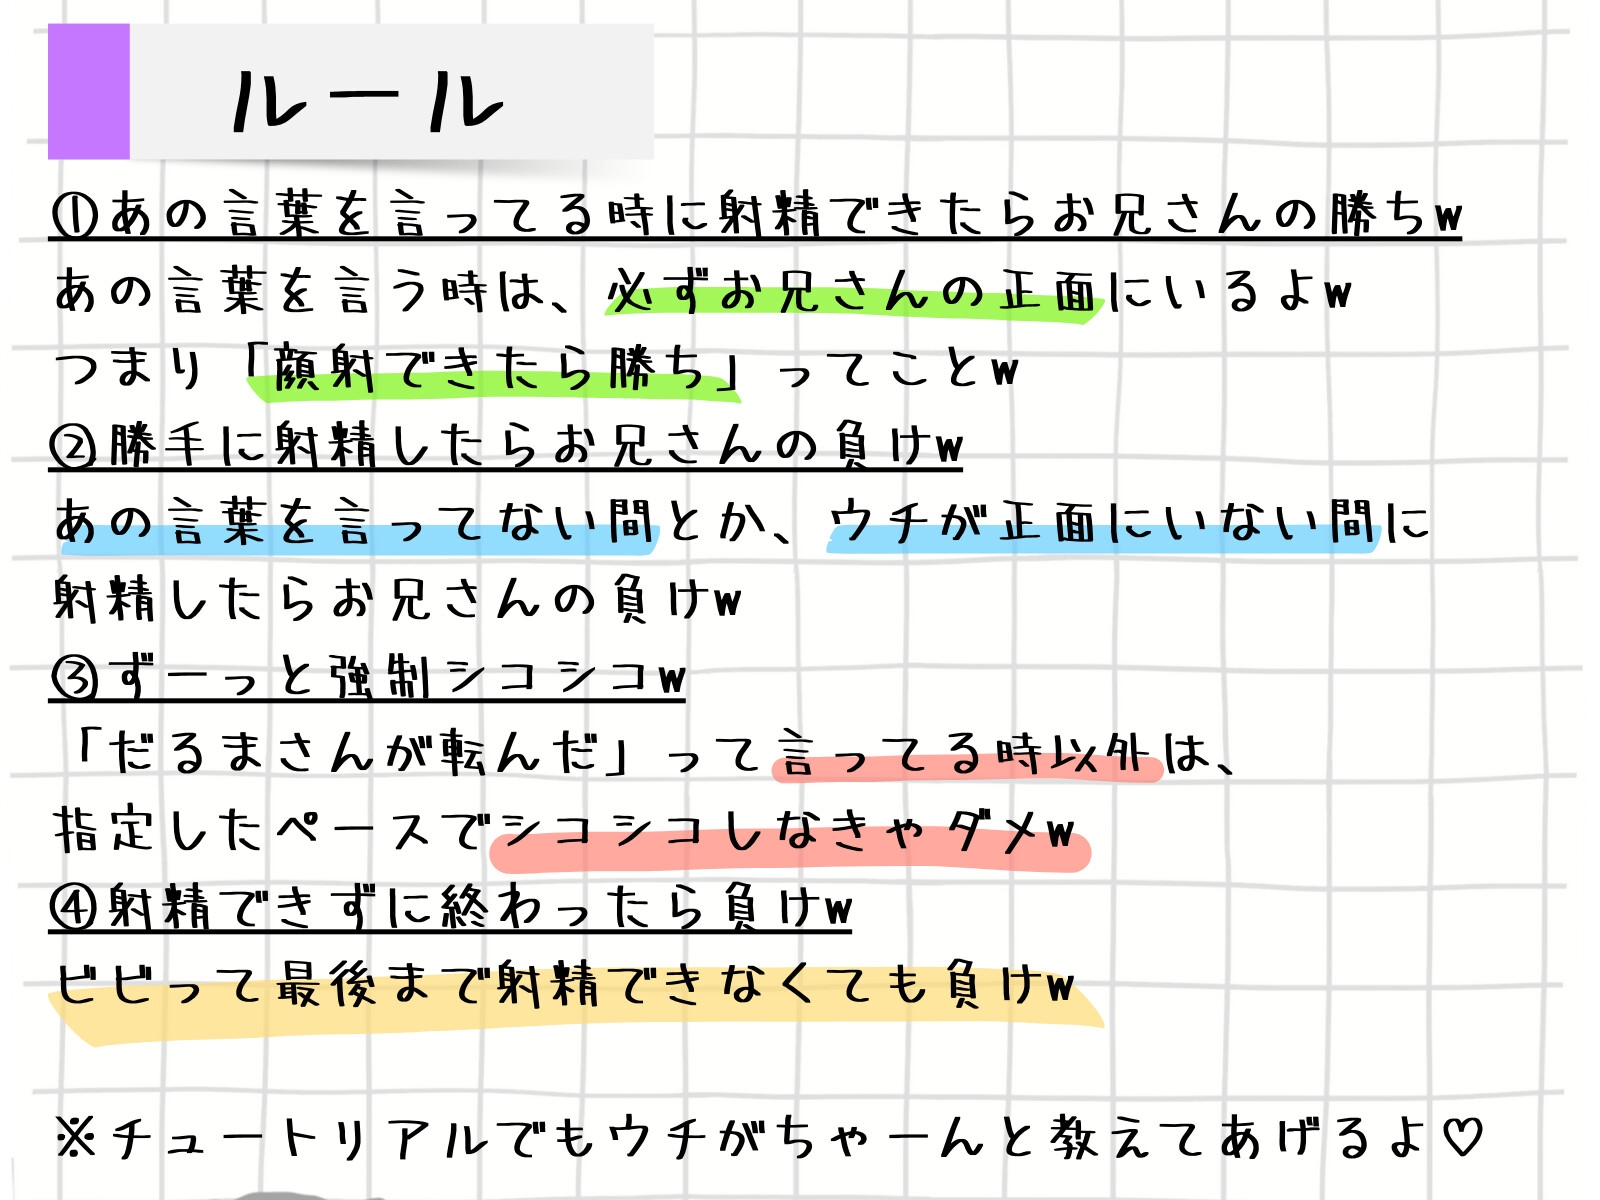 ルール
①あの言葉を言ってる時に射精できたらお兄さんの勝ちw
あの言葉を言う時は、必ずお兄さんの正面にいるよw
つまり「顔射できたら勝ち」ってことw
②勝手に射精したらお兄さんの負けw
あの言葉を言ってない間とか、ウチが正面にいない間に
射精したらお兄さんの負けw
③ずーっと強制シコシコw
「だるまさんが転んだ」って言ってる時以外は、
指定したペースでシコシコしなきゃダメw
④射精できずに終わったら負けw
ビビって最後まで射精できなくても負けw
※チュートリアルでもウチがちゃーんと教えてあげるよ♡